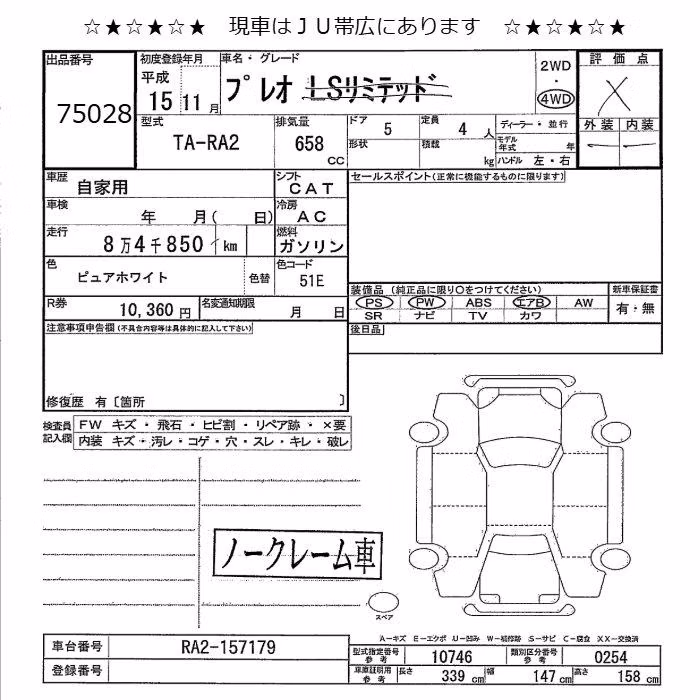 ☆★☆★☆★ 現車はＪＵ帯広にあります ☆★☆★☆★
出品番号 75028
初度登録年月 平成 15 11 月
車名・グレード プレオ LSリミテッド
2WD ・ 4WD
評価点 X
外装 内装
― ―
型式 TA-RA2
排気量 658 CC
ドア 5 定員 4 人
形状 積載 kg
ディーラー・並行
モデル年式 年
ハンドル 左・右
車歴 自家用
シフト CAT
セールスポイント(正常に機能するものに限ります)
車検 年 月( 日)
冷房 AC
走行 8万4千850 km
燃料 ガソリン
色 ピュアホワイト 色替
色コード 51E
装備品 (純正品に限り○をつけてください)
新車保証書
PS PW ABS エアB AW
有・無
SR ナビ TV カワ
R券 10,360 円
名変通知期限 月 日
後日品
注意事項申告欄(不具合内容等は具体的に記入して下さい)
修復歴 有〔箇所 〕
検査員記入欄
FW キズ・飛石・ヒビ割・リペア跡・×要
内装 キズ・汚レ・コゲ・穴・スレ・キレ・破レ
ノークレーム車
スペア
A―キズ E―エクボ U―凹み W―補修跡 S―サビ C―腐食 XX―交換済
車台番号 RA2-157179
型式指定番号参考 10746
類別区分番号参考 0254
登録番号
車庫証明用参考 長さ 339 cm 幅 147 cm 高さ 158 cm